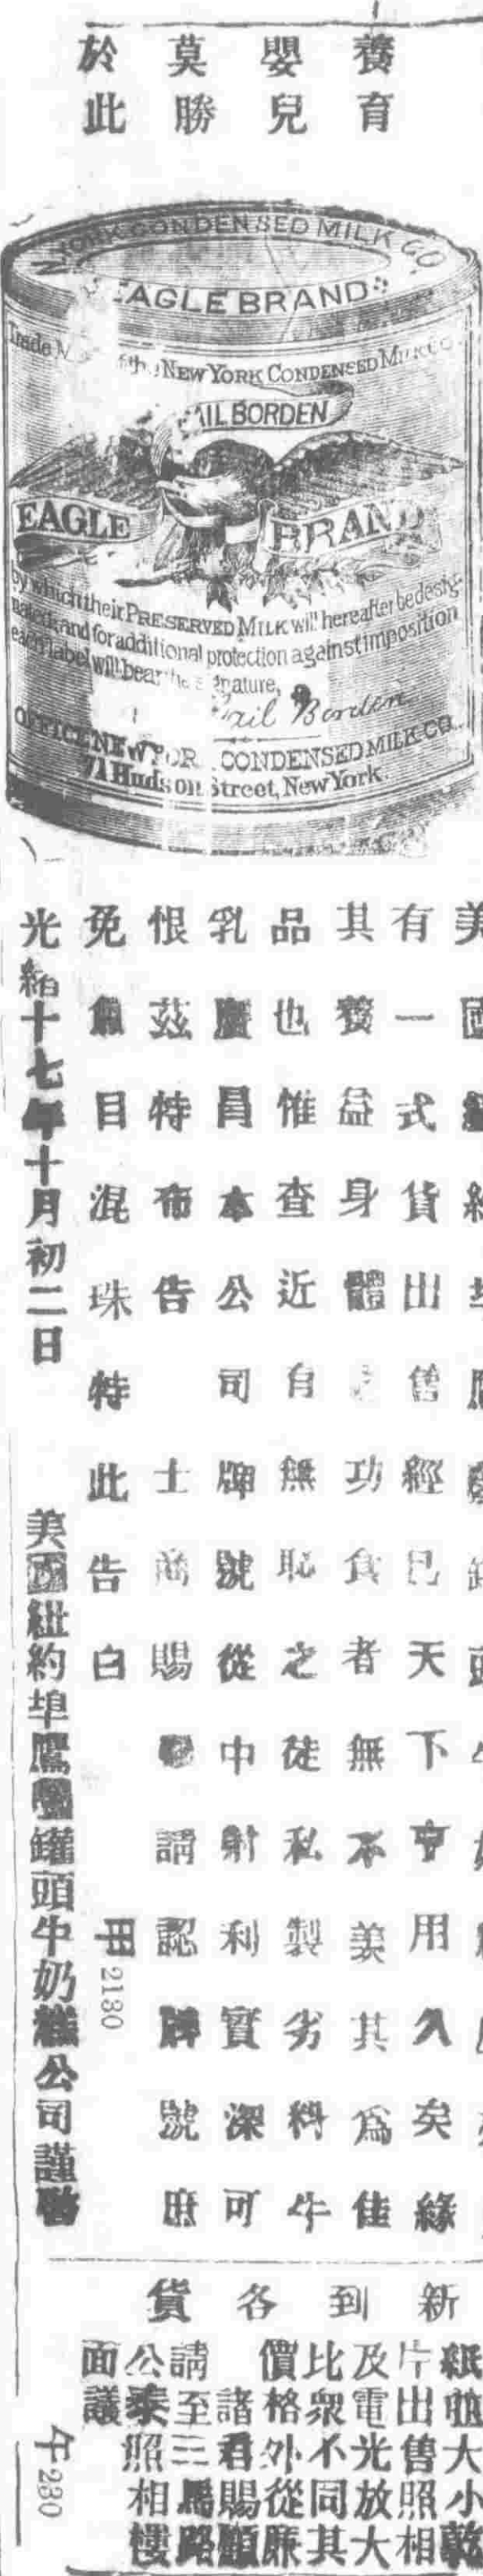 養育
嬰兒
莫勝
於此
YORK CONDENSED MILK CO.
EAGLE BRAND
Trade
the NEW YORK CONDENSED MILK CO.
GAIL BORDEN
EAGLE BRAND
by which their PRESERVED MILK will hereafter be desig-
nated: and for additional protection against imposition
each label will bear the signature,
Gail Borden
OFFICE NEW YORK CONDENSED MILK CO.
71 Hudson Street, New York
美國紐約埠鷹
有一式貨出售經已天下享用久矣緣
其養益身體之功食者無不美其為佳
品也惟查近自無恥之徒私製劣料牛
乳廣昌本公司牌號從中射利實深可
恨茲特布告 士商賜 請認牌號庶
免魚目混珠特此告白 田 2130
光緒十七年十月初二日 美國紐約埠鷹嘜罐頭牛奶糕公司謹啓
新到各貨
紙 大小乾
片出售照相
及電光放大
比衆不同其
價格外從廉
諸君賜顧
請至三馬路
公泰照相樓
面議
午 230